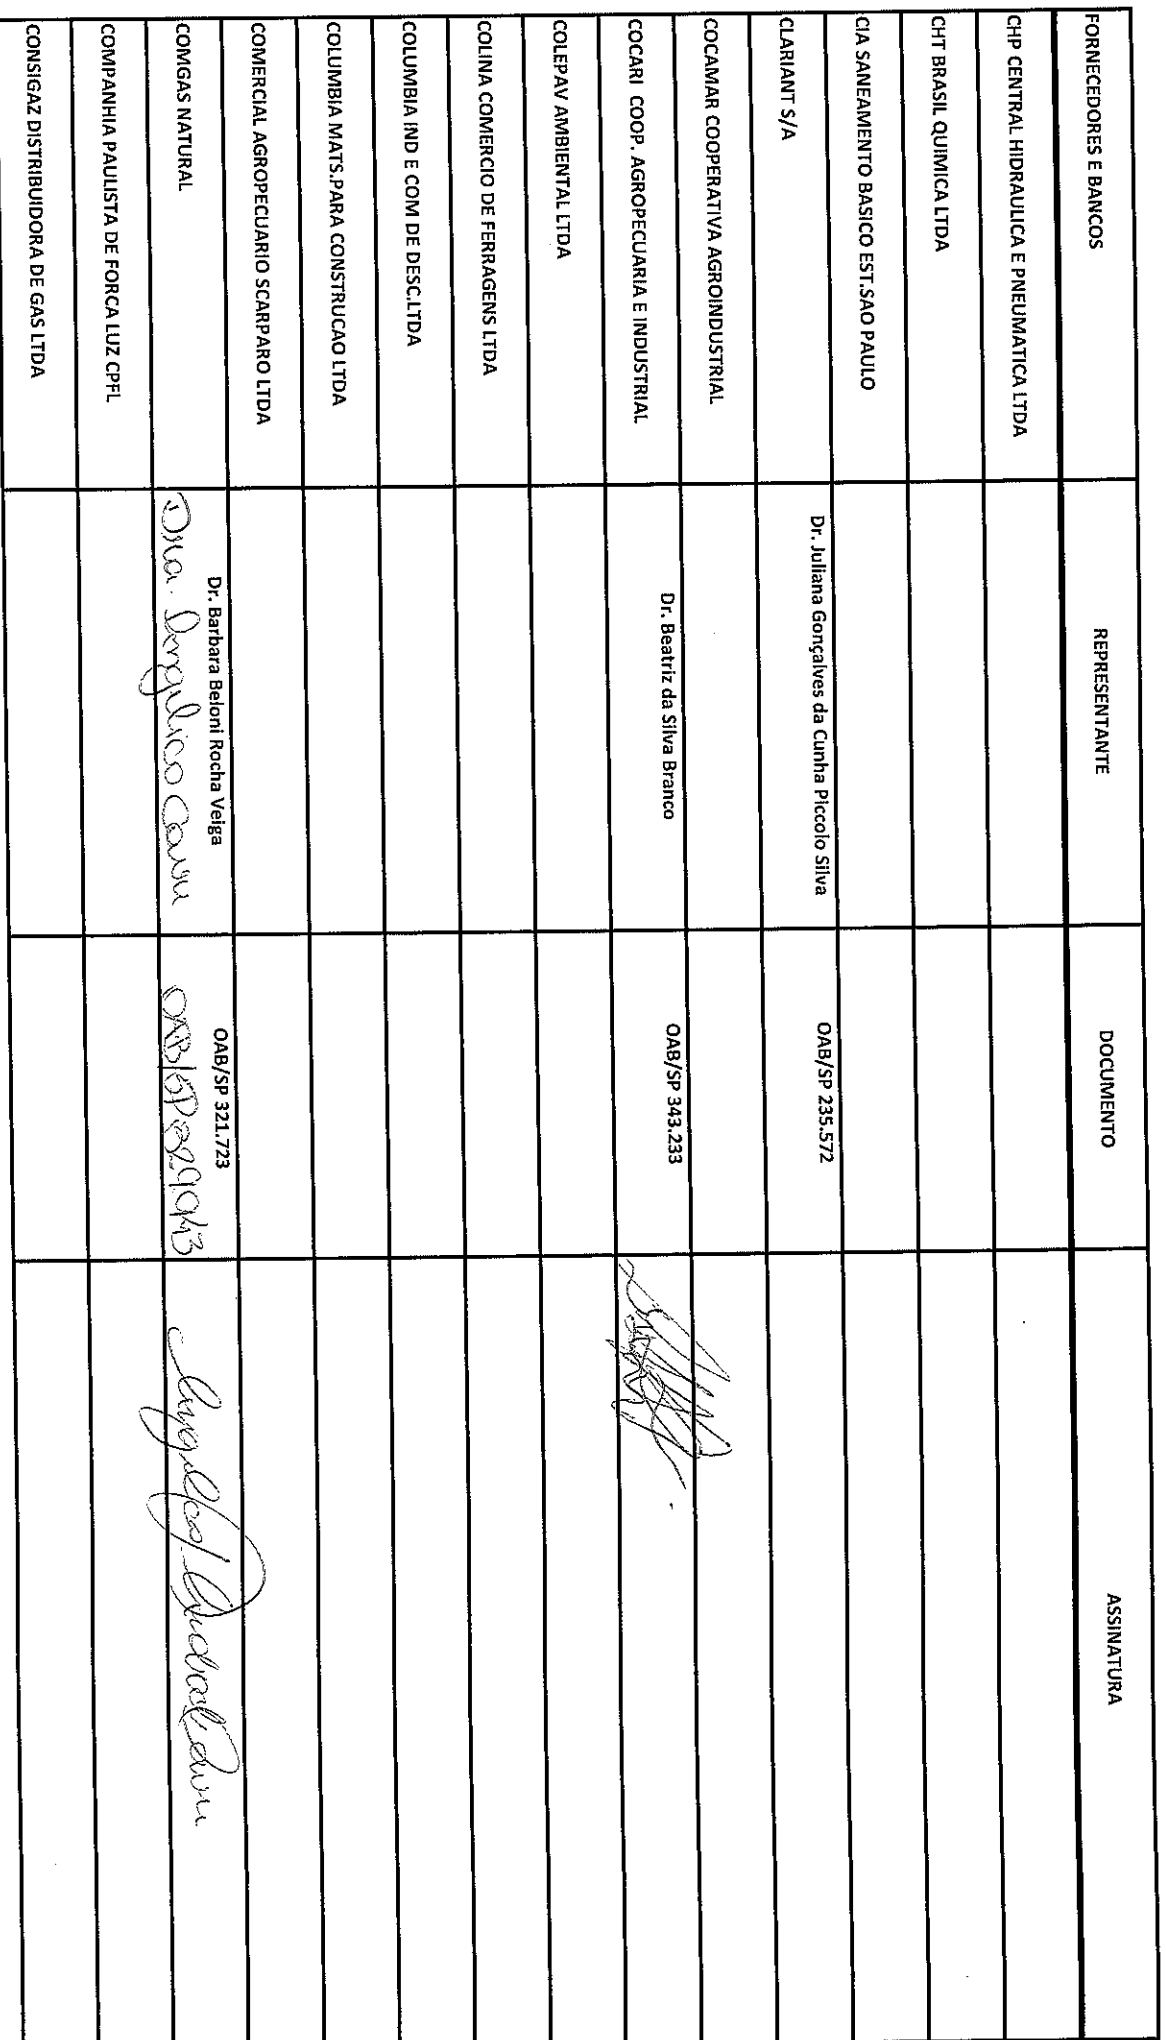 FORNECEDORES E BANCOS REPRESENTANTE DOCUMENTO ASSINATURA
CHP CENTRAL HIDRAULICA E PNEUMATICA LTDA
CHT BRASIL QUIMICA LTDA
CIA SANEAMENTO BASICO EST.SAO PAULO
CLARIANT S/A Dr. Juliana Gonçalves da Cunha Piccolo Silva OAB/SP 235.572
COCAMAR COOPERATIVA AGROINDUSTRIAL
COCARI COOP. AGROPECUARIA E INDUSTRIAL Dr. Beatriz da Silva Branco OAB/SP 343.233
COLEPAV AMBIENTAL LTDA
COLINA COMERCIO DE FERRAGENS LTDA
COLUMBIA IND E COM DE DESC.LTDA
COLUMBIA MATS.PARA CONSTRUCAO LTDA
COMERCIAL AGROPECUARIO SCARPARO LTDA
COMGAS NATURAL Dr. Barbara Beloni Rocha Veiga OAB/SP 321.723
Dra. OAB/SP
COMPANHIA PAULISTA DE FORCA LUZ CPFL
CONSIGAZ DISTRIBUIDORA DE GAS LTDA